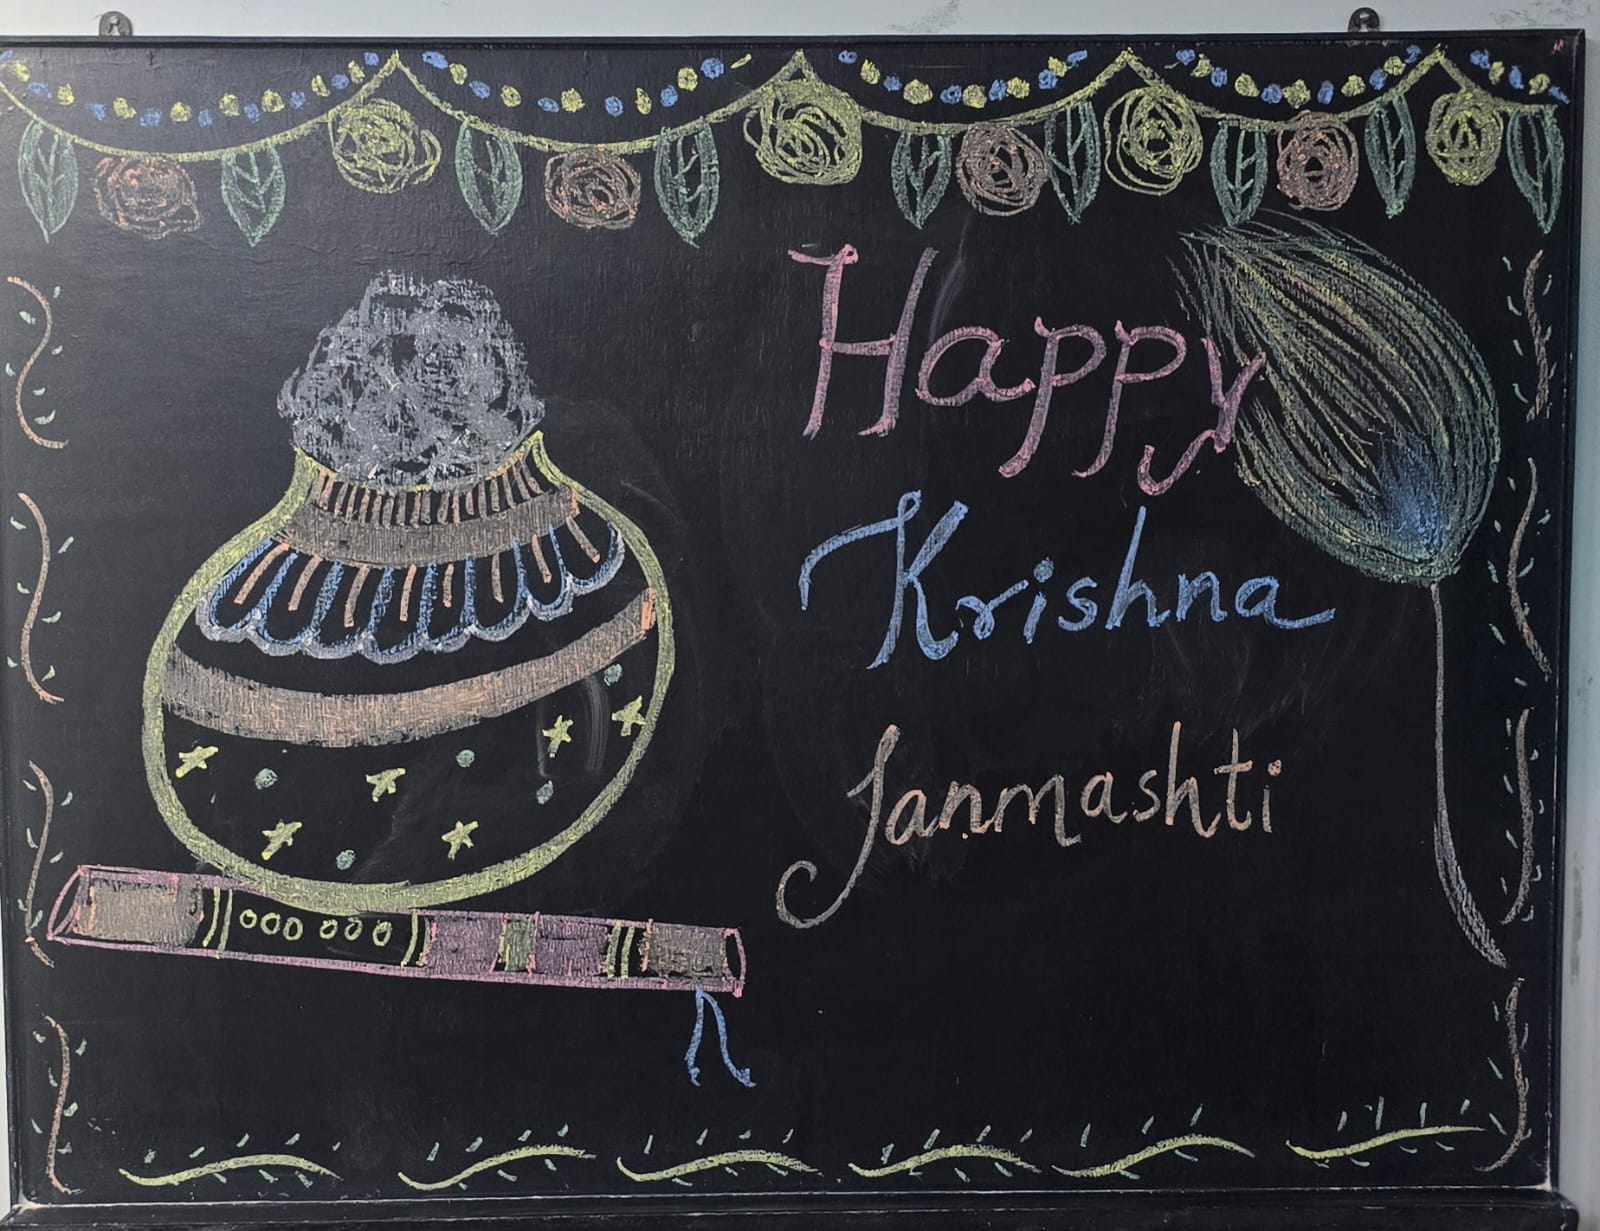 Happy
Krishna
Janmashti